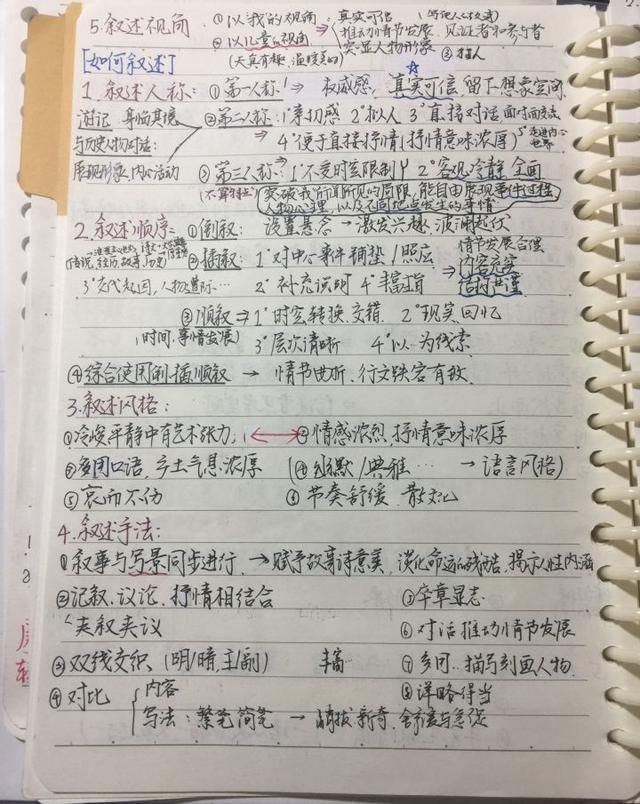 5.叙述视角 ①以我的视角 真实可信
②以儿童的视角 推动情节发展 见证者和参与者
(天真有趣,温暖美好) 突显人物形象 ③ 

[如何叙述]
1.叙述人称: ①第一人称 1° 权威感, 真实可信 留下想象空间
游记 身临其境 ②第二人称: 1°亲切感 2°拟人 3°直接对话
与历史人物对话: ⇒ 4°便于直接抒情(抒情意味浓厚) 5°走进内心世界
展现形象、内心活动 ③第三人称: 1°不受时空限制 2°客观冷静 全面
突破我所谓所见的局限,能自由展现事件过程
人物心理,以及不同地点发生的事情
2.叙述顺序: ①倒叙: 设置悬念 → 激发兴趣,波澜起伏
传说,经历,故事,历史 ②插叙: 1°对中心事件铺垫/照应 情节发展合理
内容充实
3°交代起因,人物遭际… 2°补充说明 4°丰富 ⇒ 结构严谨
③顺叙 ⇒ 1°时空转换、交错 2°现实、回忆
(时间、事情发展) 3°层次清晰 4°以 为线索
④综合使用倒、插、顺叙 → 情节曲折、行文跌宕有致
3.叙述风格:
①冷峻平静中有艺术张力, ②情感浓烈,抒情意味浓厚
③多用口语,乡土气息浓厚 (④幽默/典雅… → 语言风格)
⑤哀而不伤 ⑥节奏舒缓、散文化
4.叙述手法:
①叙事与写景同步进行, → 赋予故事诗意美,淡化命运的残酷,揭示人性内涵
②记叙、议论、抒情相结合 ⑤卒章显志
夹叙夹议 ⑥对话推动情节发展
③双线交织、(明/暗,主/副) 丰富 ⑦多用…描写刻画人物
④对比 内容 ⑧详略得当
写法:繁笔简笔 → 峭拔新奇 舒缓与急促